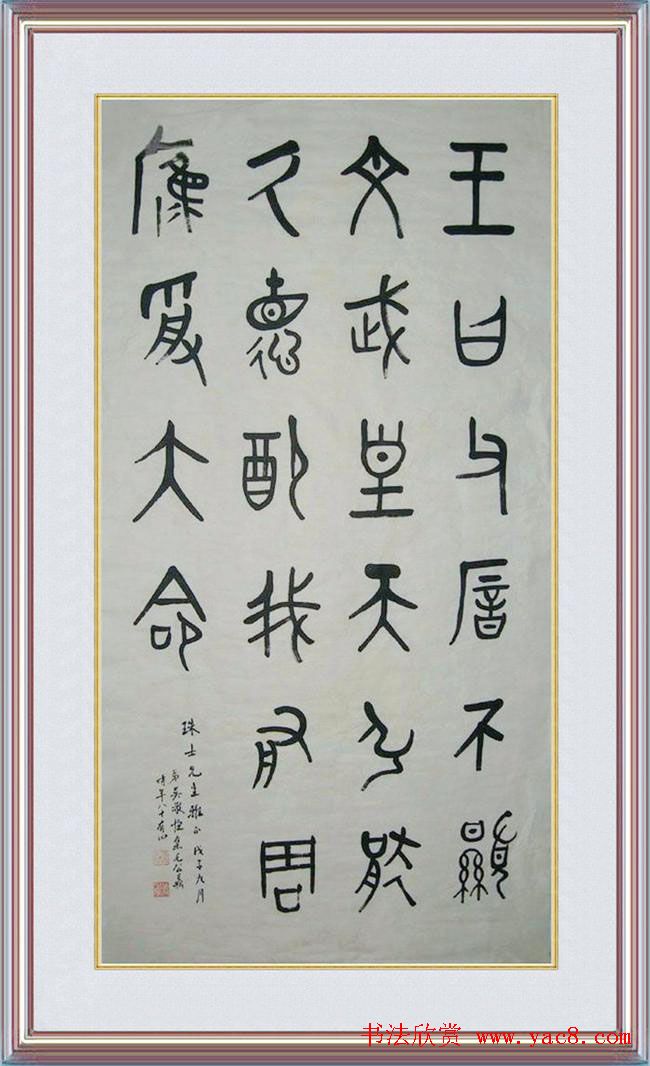 王曰父厝不顯
文武皇天弘猒
氒德配我有周
膺受大命
珠士先生雅正 戊子九月
弟吳敬恒集毛公鼎
時年八十有四
书法欣赏 www.yac8.com